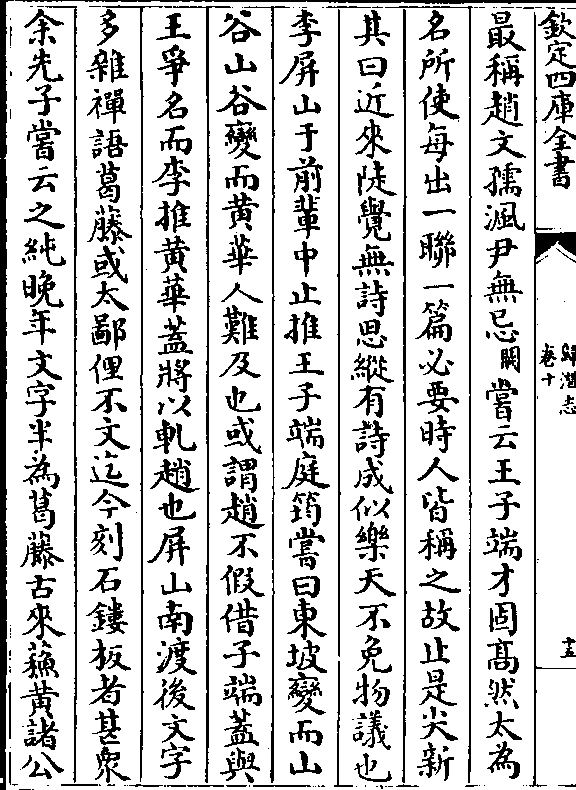 欽定四庫全書
歸潛志
卷十
十五
最稱趙文孺渢尹無忌闕嘗云王子端才固髙然太為
名所使每出一聯一篇必要時人皆稱之故止是尖新
其曰近來陡覺無詩思縱有詩成似樂天不免物議也
李屏山于前輩中止推王子端庭筠嘗曰東坡變而山
谷山谷變而黄華人難及也或謂趙不假借子端蓋與
王爭名而李推黄華蓋將以軋趙也屏山南渡後文字
多雜禪語葛藤或太鄙俚不文迄今刻石鏤板者甚衆
余先子嘗云之純晚年文字半為葛藤古來蘇黄諸公